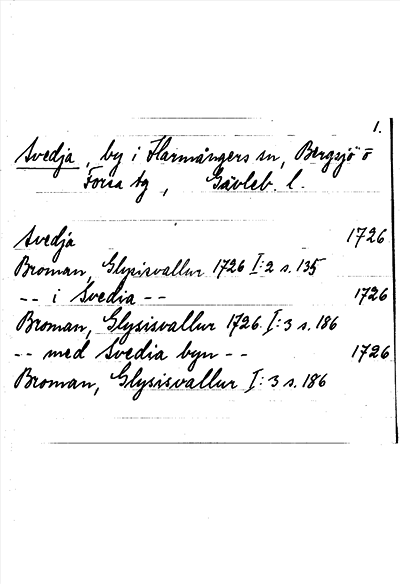 1.
Svedja, by i Harmångers sn, Bergsjö o
Forsa tg, Gävleb. l.
Svedja 1726
Broman, Glysisvallur 1726 I:2 s. 135
-- i Svedia -- 1726
Broman, Glysisvallur 1726 I:3 s. 186
-- med Svedia byn -- 1726
Broman, Glysisvallur I:3 s. 186